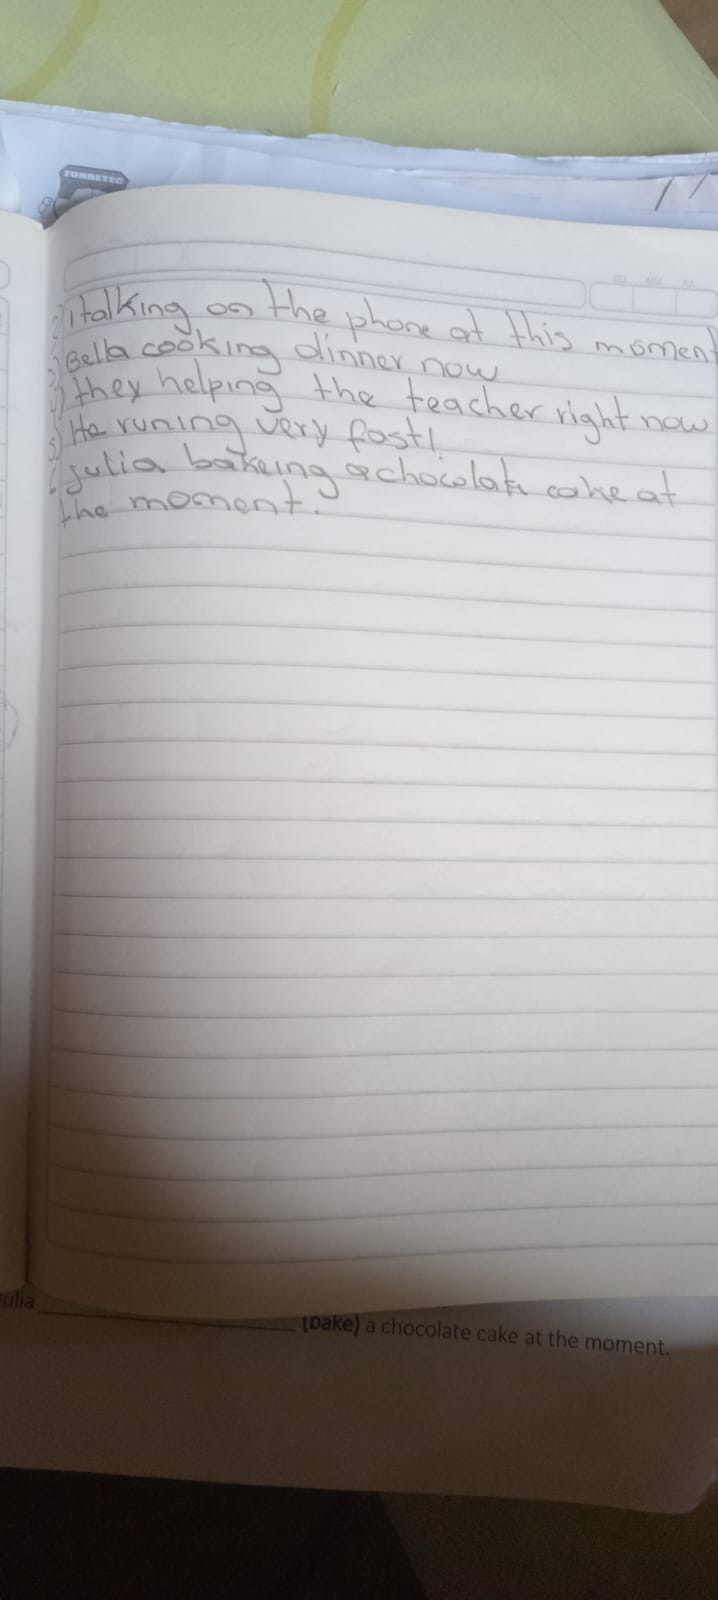 FUNDETEC
DD MM AA
2) I talking on the phone at this moment
3) Bella cooking dinner now
4) they helping the teacher right now
5) He runing very fast!.
6 Julia bakeing a chocolate cake at
the moment.
ulia ____________ (bake) a chocolate cake at the moment.